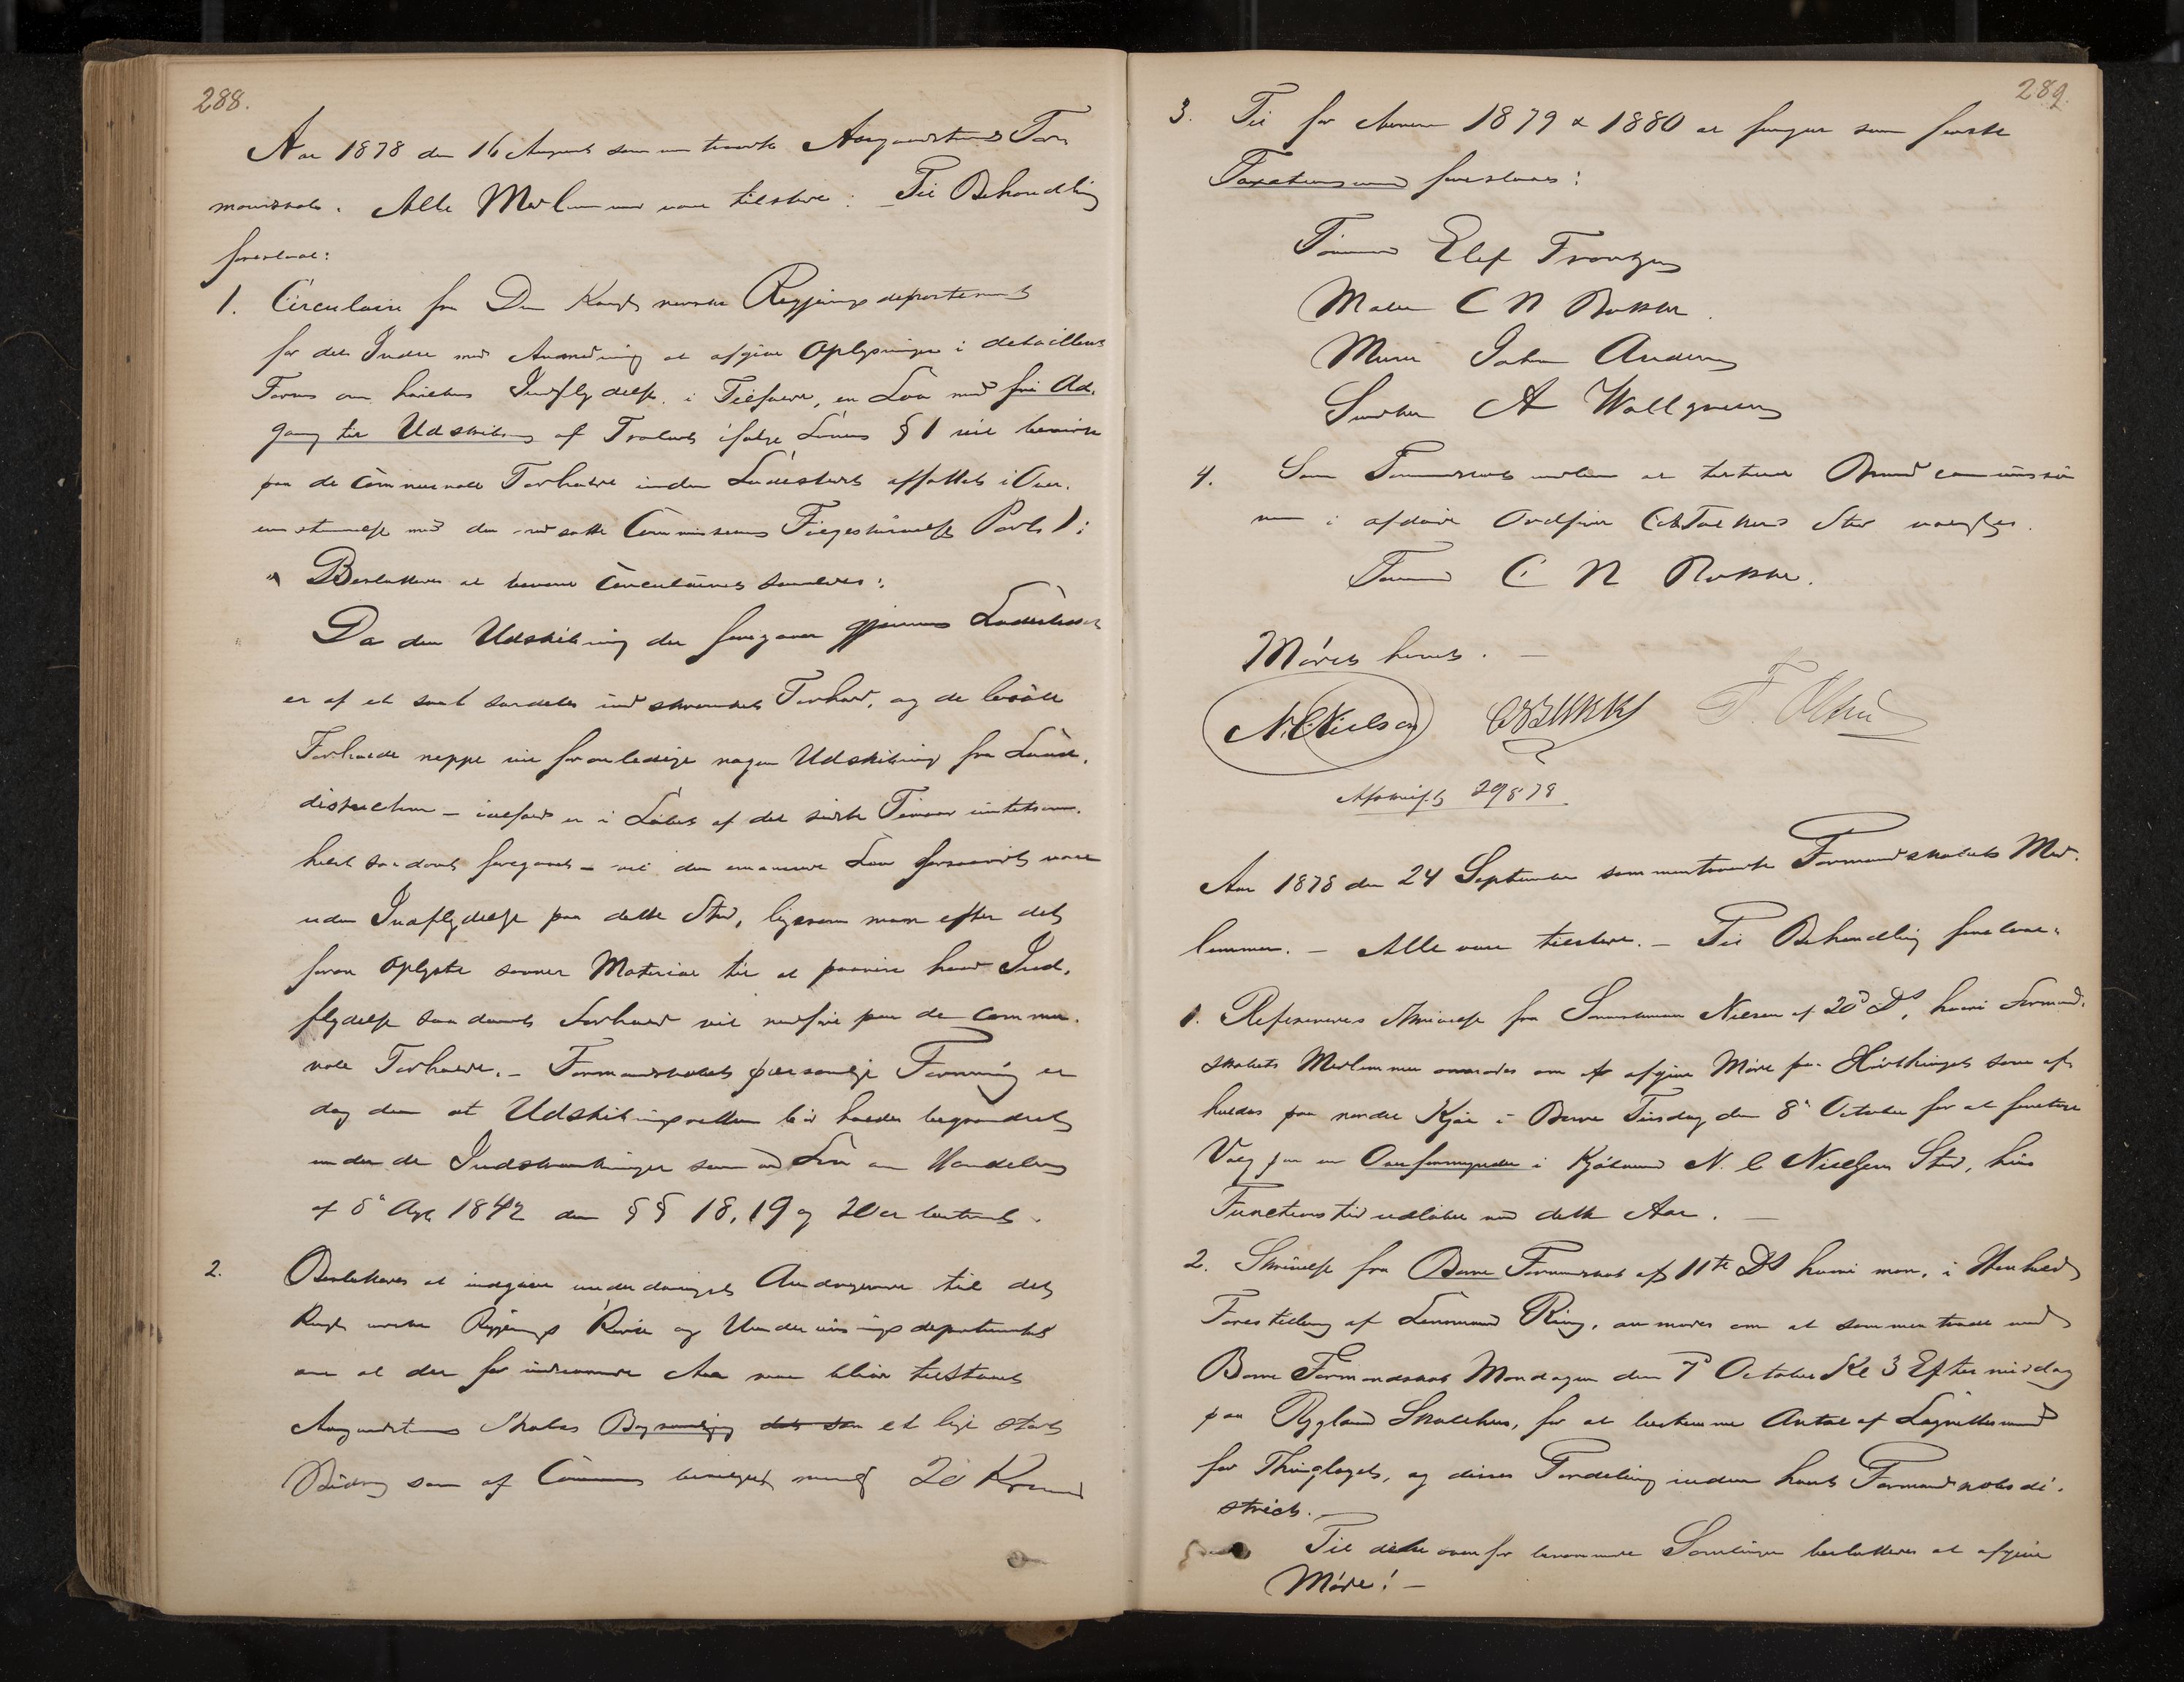 288.
Aar 1878 den 16 August sammentraadte Aasgaardstrands For
mandskab. Alle Medlemmer vare tilstede: Til Behandling
forelaae:
1. Circulaire fra Den Kongl norske Regjerings departement
for det Indre med Anmodning at afgive Oplysninger i detailleret
Form om hvilken Indflydelse i Tilfælde, en Lov med fri Ad-
gang til Udskibning af Trælast ifølge Lovens § 1 vil bevirke
paa de communale Forhold inden Ladestedet affattet i Over-
ensstemmelse med den nedsatte Commissions Post 1:
Besluttedes at besvare Circulairet saaledes:
Da den Udskibning der foregaaer gjennem Ladestedet
er af et saa særdeles indskrænket Forhold, og de locale
Forholde neppe vil foranledige nogen Udskibning fra Land-
districterne – ialfald er i Løbet af det sidste Tiaar intetsom-
helst saadant foregaaet – vil den Lov forsaavidt være
uden Indflydelse paa dette Sted, ligesom man efter det
foran Oplyste savner Materiale til at paavise hvad Ind-
flydelse saadant Forhold vil medføre paa de commu-
nale Forholde. – Formandskabets personlige Formening er
dog den at Udskibningsretten bør holdes begrændset
under de Indskrænkninger som ved Lov om Handelen
af 8de Aug 1842 dens §§ 18, 19 og 20 er bestemt.
2. Besluttedes at indgive underdanigst Andragende til det
Kongl norske Regjerings Kirke og Undervisningsdepartement
om at der for indeværende Aar maa blive tilstaaet
Aasgaardstrands Skoles Bogsamling det som et lige stort
Bidrag som af Communen bevilget nemlig 20 Kroner
289.
3. Til for Aarene 1879 & 1880 at fungere som faste
Taxationsmænd foreslaaes:
Tømmermand Elef Frantzen
Maler C N Bakke
Murer Johan Andersen
Snedker A Wallgreen
4. Som Formandskabets medlem at tiltræde Brandcommissio
nen i afdøde Ordfører Sted vælges.
Formand C N Bakke.
Mødet hævet. –
N. C. Nielsen F. Olsen
Afskrift 29/8 78
Aar 1878 den 24 September sammentraadte Formandskabets Med-
lemmer. – Alle vare tilstede. – Til Behandling forelaae:
1. Refereredes Skrivelse fra Lensmann Nielsen af 20de Ds, hvori Formand-
skabets Medlemmer anmodes om at afgive Møde paa Høstthinget som af-
holdes paa nordre Kjær i Borre Tirsdag den 8de October for at foretage
Valg paa en Overformynder i Kjøbmand N. C Nielsens Sted, hvis
Functionstid udløber med dette Aar. –
2. Skrivelse fra Borre Formandskab af 11te Ds hvori man, i Henhold
Forestilling af Lensmand Ring, anmodes om at sammentræde med
Borre Formandskab Mandagen den 7de October Kl 3 Eftermiddag
paa Rygland Skolehus, for at bestemme Antal af Lagrettesmænd
for Thinglaget, og disses Fordeling inden hvert Formandskabsdi-
strict. –
Til dette ovenfor benævnte Samlinger besluttedes at afgive
Møde! –